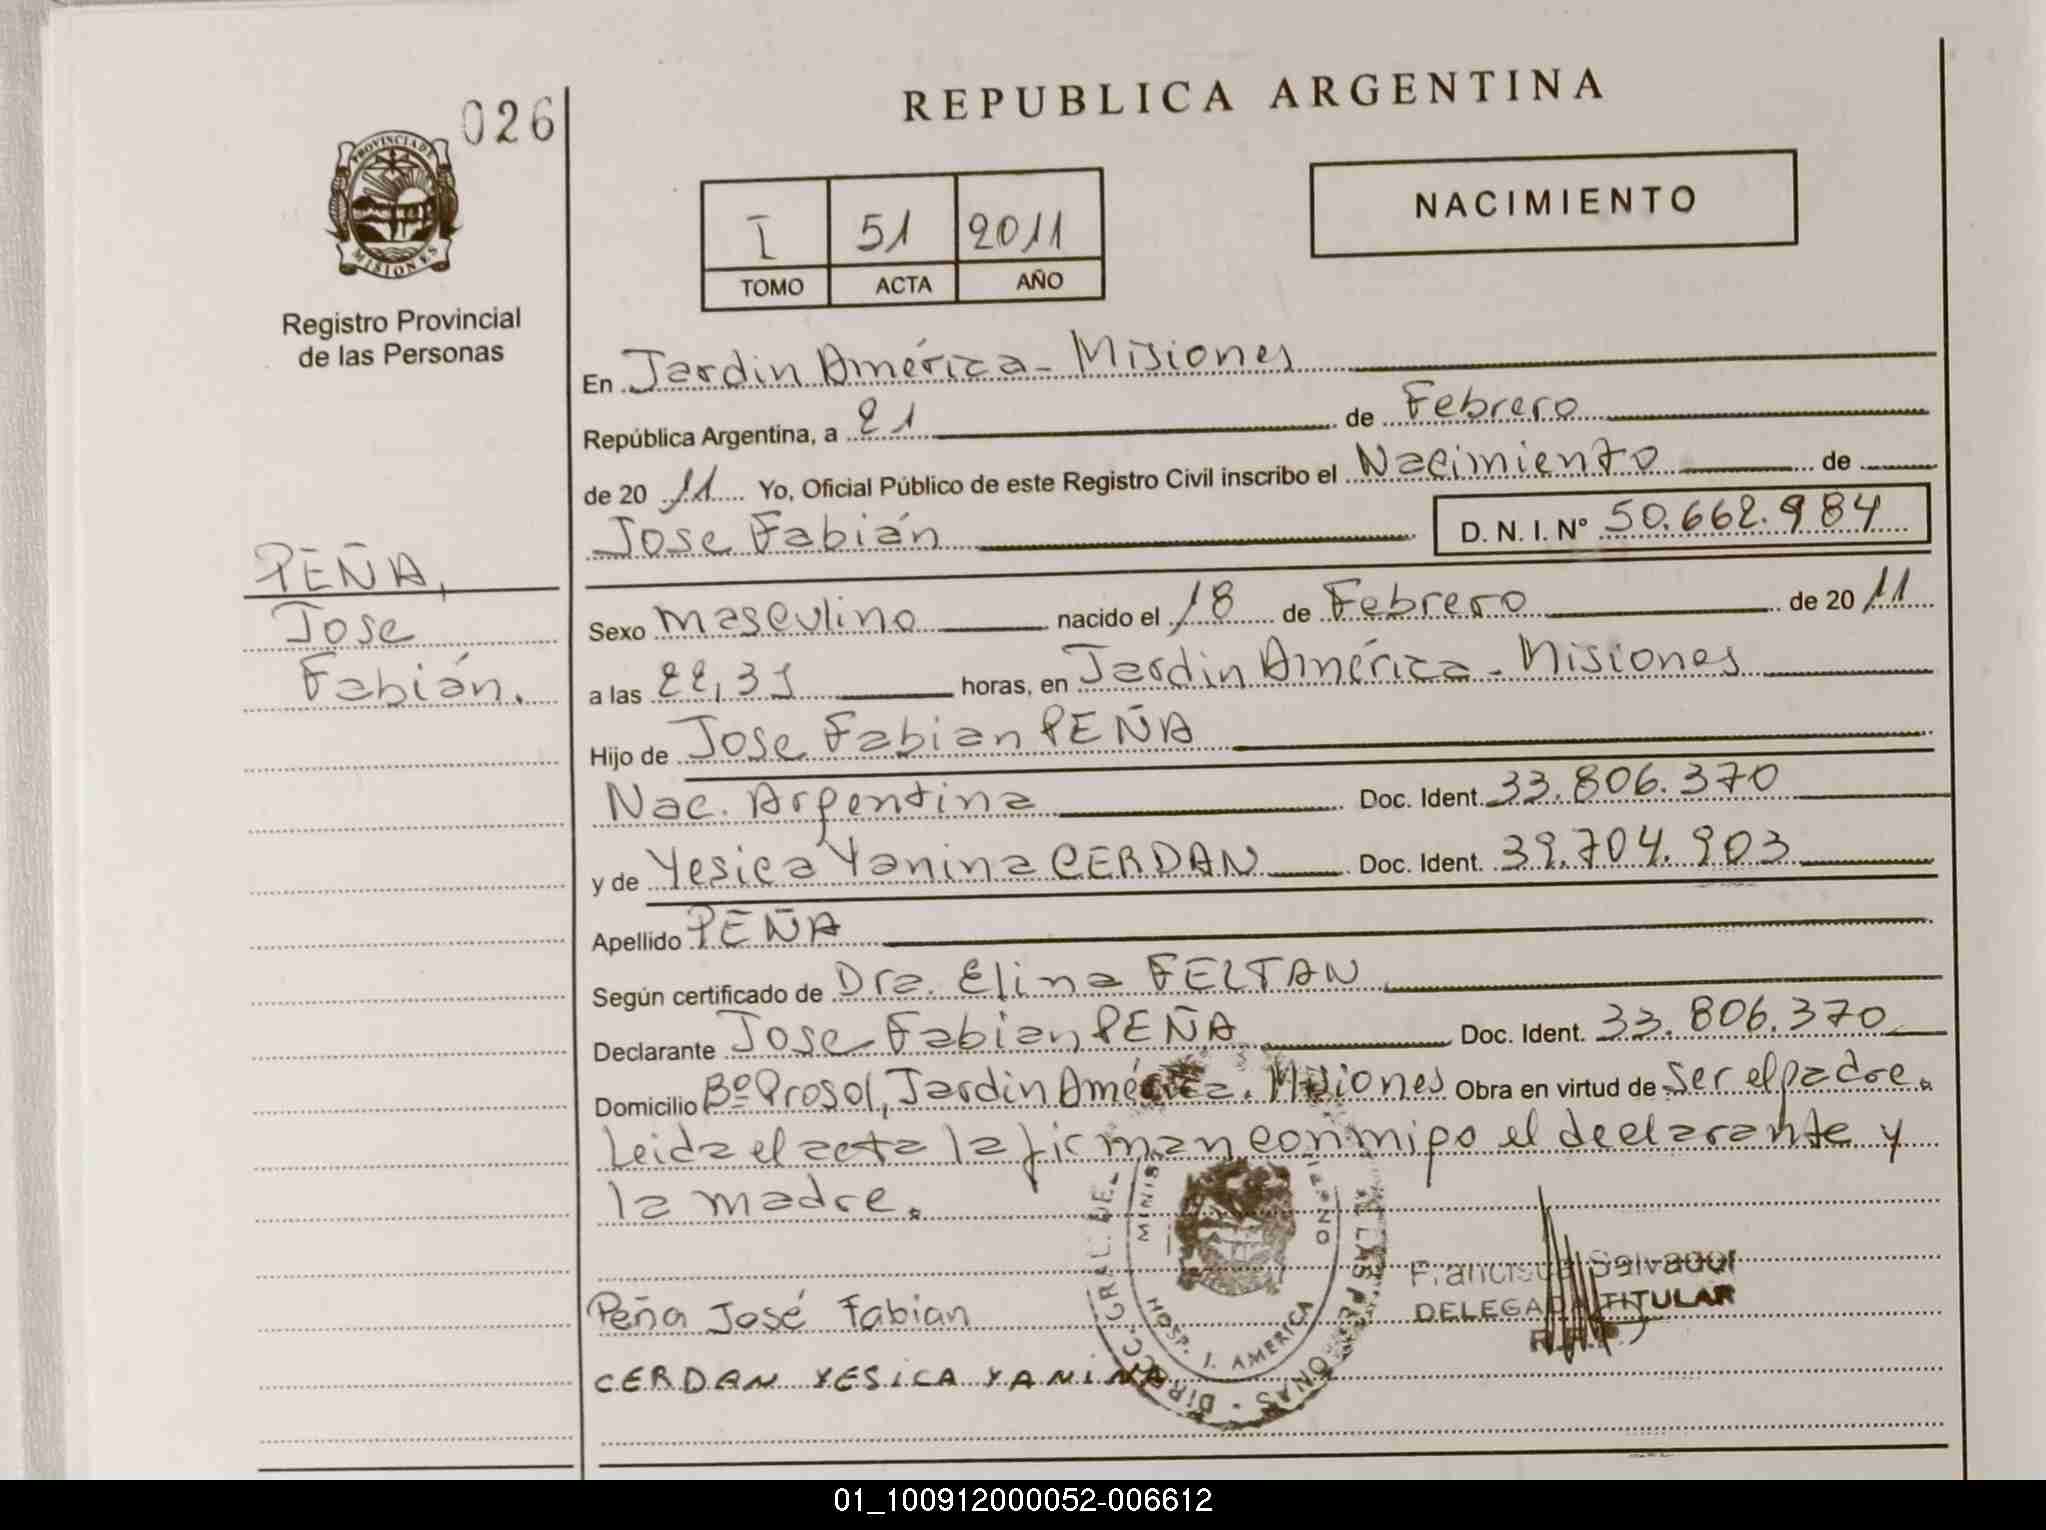 026
PROVINCIA DE
MISIONES
Registro Provincial
de las Personas
REPUBLICA ARGENTINA
I 51 2011
TOMO ACTA AÑO
NACIMIENTO
En Jardin América - Misiones
República Argentina, a 21 de Febrero
de 20 11 Yo, Oficial Público de este Registro Civil inscribo el Nacimiento de
Jose Fabián D. N. I. Nº 50.662.984
PEÑA,
Jose
Fabián.
Sexo masculino nacido el 18 de Febrero de 20 11
a las 22,31 horas, en Jardin América - Misiones
Hijo de Jose Fabian PEÑA
Nac. Argentina Doc. Ident. 33.806.370
y de Yesica Yanina CERDAN Doc. Ident. 39.704.903
Apellido PEÑA
Según certificado de Dra. Elina FELTAN
Declarante Jose Fabian PEÑA Doc. Ident. 33.806.370
Domicilio Bº Prosol, Jardin América. Misiones Obra en virtud de ser el padre.
Leida el acta la firman conmigo el declarante y
la madre.
Peña José Fabian
CERDAN YESICA YANINA
DIRECC. GRAL. DE LAS PERSONAS
MINIS
HOSP. J. AMERICA
Salvador
DELEGADA TITULAR
01_100912000052-006612